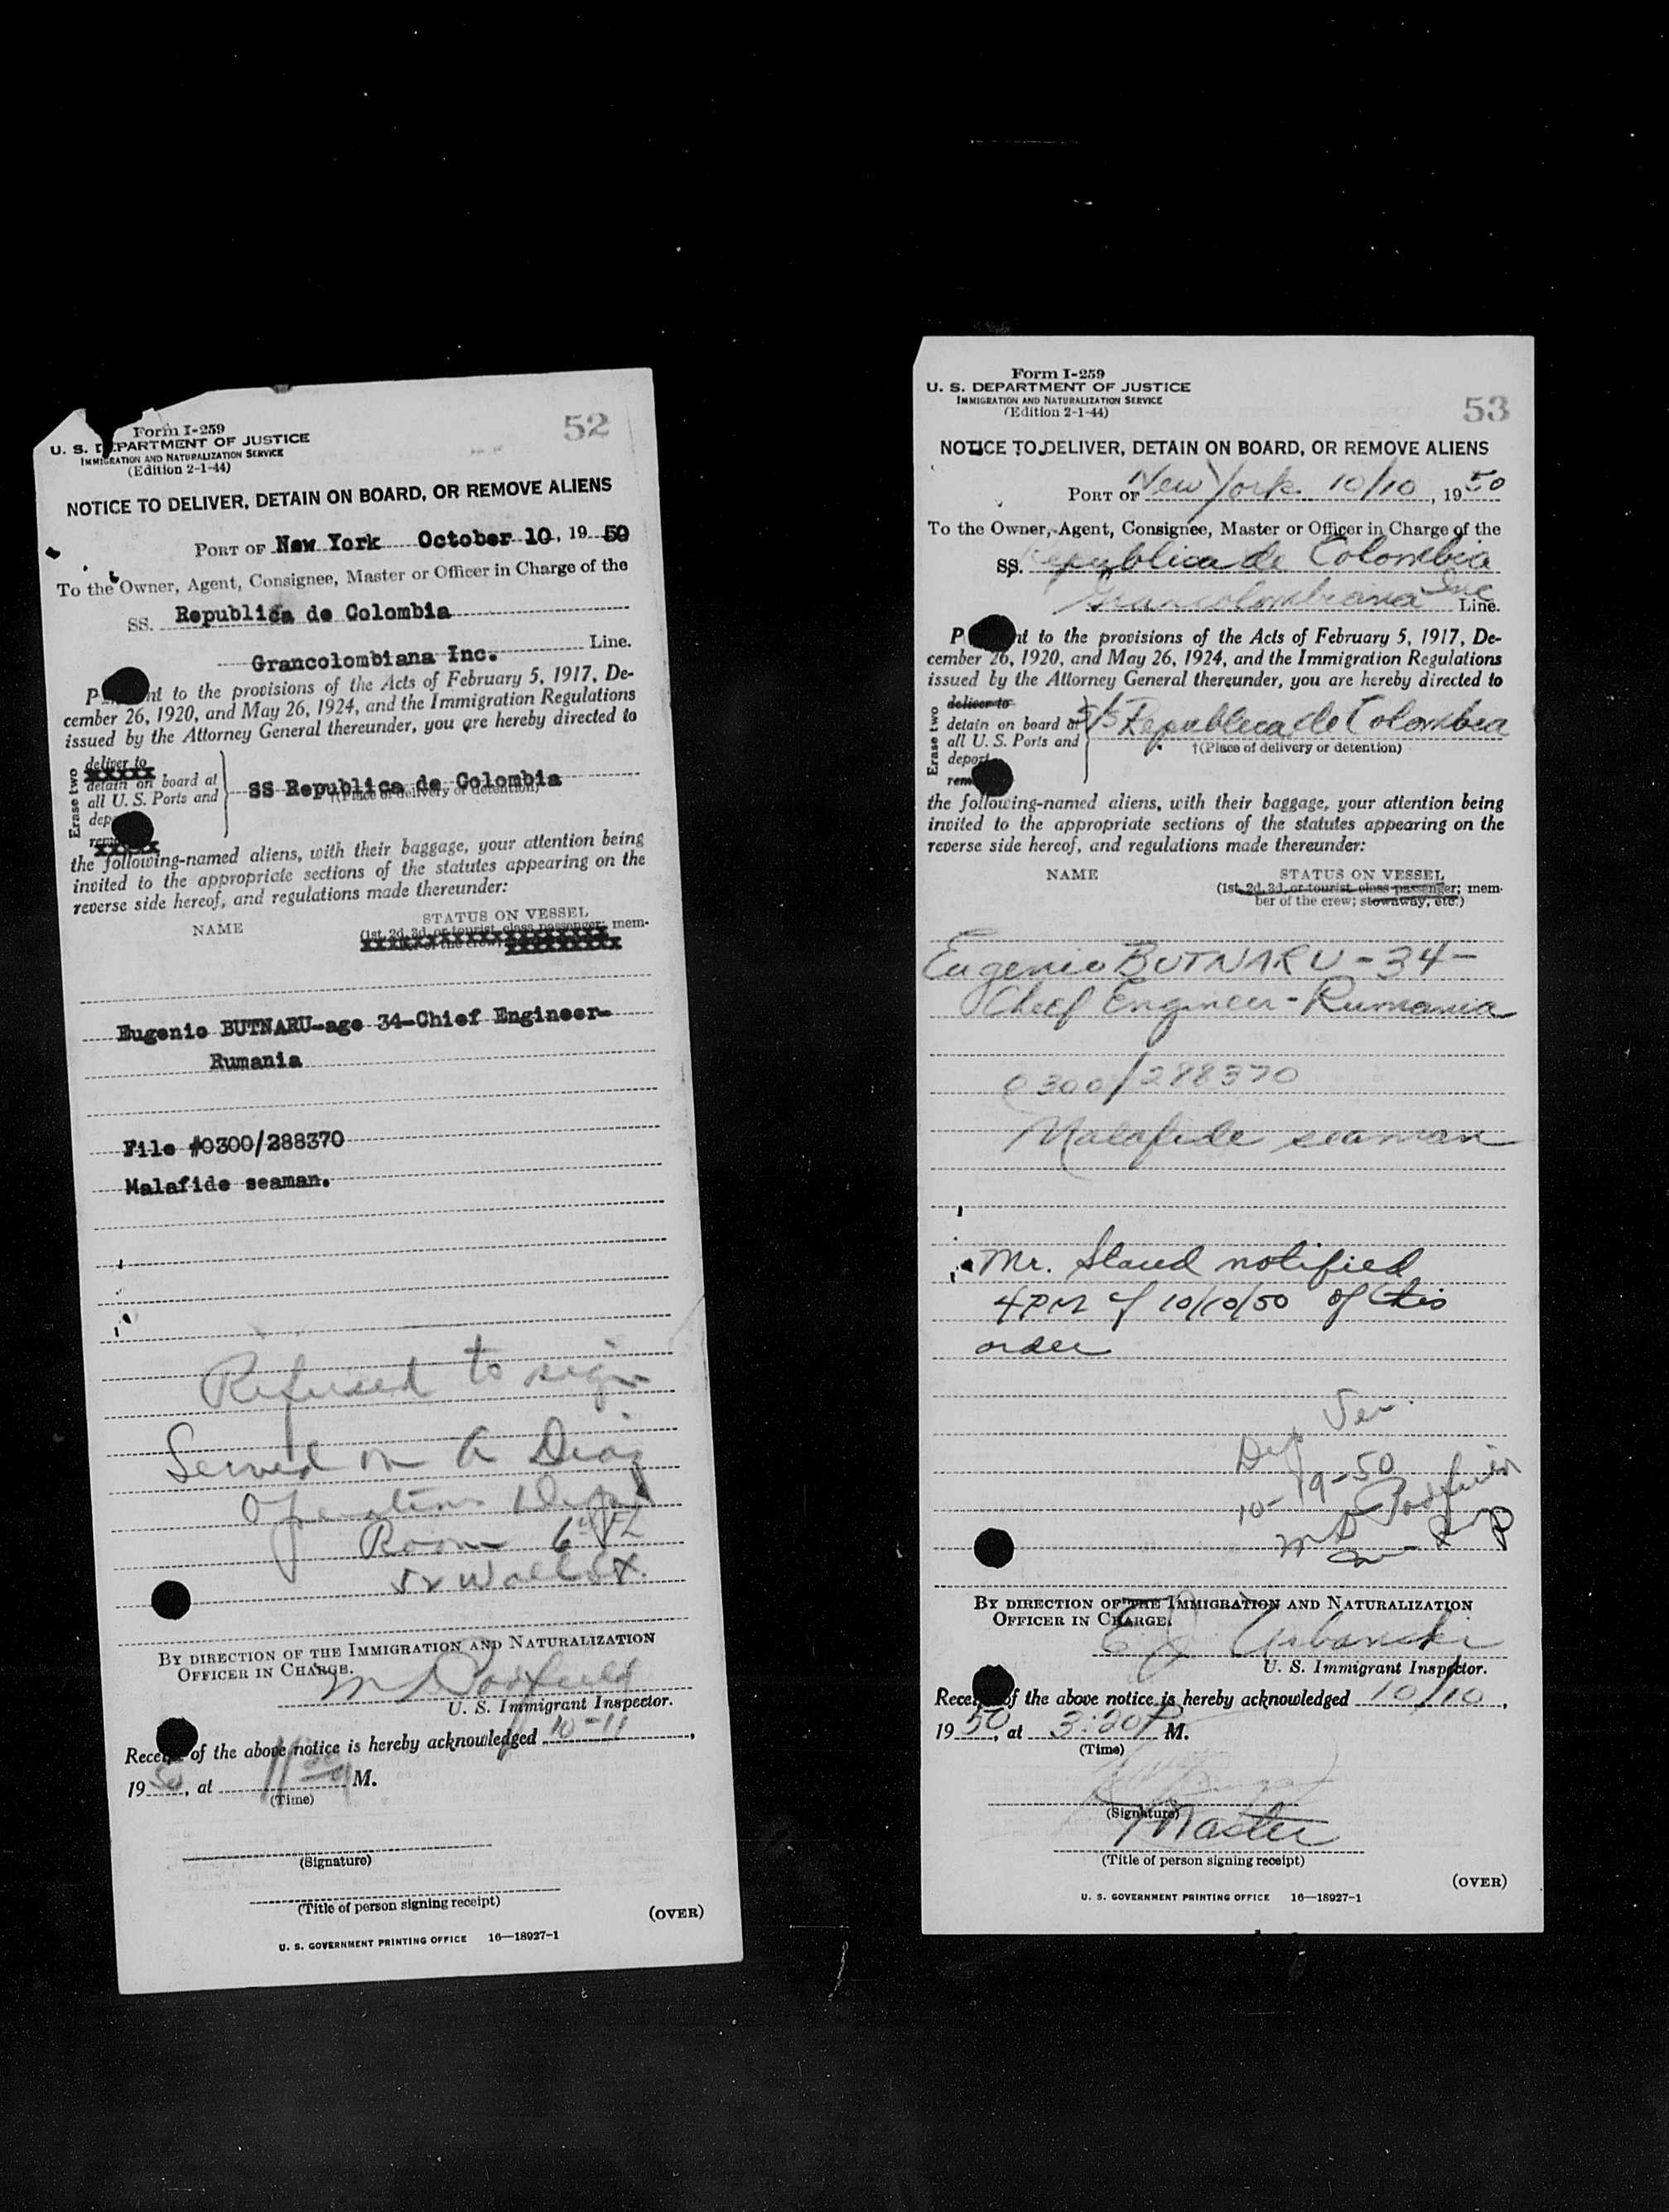 Form I-259
U. S. DEPARTMENT OF JUSTICE
IMMIGRATION AND NATURALIZATION SERVICE
(Edition 2-1-44)
52
NOTICE TO DELIVER, DETAIN ON BOARD, OR REMOVE ALIENS
PORT OF New York October 10, 19 50
To the Owner, Agent, Consignee, Master or Officer in Charge of the
SS. Republica de Colombia
Grancolombiana Inc. Line.
P nt to the provisions of the Acts of February 5, 1917, De-
cember 26, 1920, and May 26, 1924, and the Immigration Regulations
issued by the Attorney General thereunder, you are hereby directed to
Erase two
deliver to
detain on board at
all U. S. Ports and
dep
remo
SS Republica de Colombia
†(Place of delivery or detention)
the following-named aliens, with their baggage, your attention being
invited to the appropriate sections of the statutes appearing on the
reverse side hereof, and regulations made thereunder:
NAME
STATUS ON VESSEL
(1st, 2d, 3d, or tourist class passenger; mem-
of the crew;
Eugenio BUTNARU-age 34-Chief Engineer-
Rumania
File #0300/288370
Malafide seaman.
Refused to sign
Served on A Diaz
Operations Dept
Room
52 Wall St.
BY DIRECTION OF THE IMMIGRATION AND NATURALIZATION
OFFICER IN CHARGE.
M
U. S. Immigrant Inspector.
Rece of the above notice is hereby acknowledged 10-11,
19 50, at 11 00 M.
(Time)
(Signature)
(Title of person signing receipt)
(OVER)
U. S. GOVERNMENT PRINTING OFFICE 16—18927-1
Form I-259
U. S. DEPARTMENT OF JUSTICE
IMMIGRATION AND NATURALIZATION SERVICE
(Edition 2-1-44)
53
NOTICE TO DELIVER, DETAIN ON BOARD, OR REMOVE ALIENS
PORT OF New York 10/10, 19 50
To the Owner, Agent, Consignee, Master or Officer in Charge of the
SS. Republica de Colombia
Grancolombiana Inc Line.
P nt to the provisions of the Acts of February 5, 1917, De-
cember 26, 1920, and May 26, 1924, and the Immigration Regulations
issued by the Attorney General thereunder, you are hereby directed to
Erase two
deliver to
detain on board at
all U. S. Ports and
deport
rem
S/S Republica de Colombia
†(Place of delivery or detention)
the following-named aliens, with their baggage, your attention being
invited to the appropriate sections of the statutes appearing on the
reverse side hereof, and regulations made thereunder:
NAME
STATUS ON VESSEL
(1st, 2d, 3d, or tourist class passenger; mem-
ber of the crew; stowaway, etc.)
Eugenio BUTNARU - 34 -
Chief Engineer - Rumania
0300/288370
Malafide seaman
Mr. notified
4 PM of 10/10/50 of this
order
10-19-50
BY DIRECTION OF THE IMMIGRATION AND NATURALIZATION
OFFICER IN CHARGE.
E J Urbanski
U. S. Immigrant Inspector.
Rece of the above notice is hereby acknowledged 10/10,
19 50, at 3:20 P M.
(Time)
(Signature)
Master
(Title of person signing receipt)
(OVER)
U. S. GOVERNMENT PRINTING OFFICE 16—18927-1